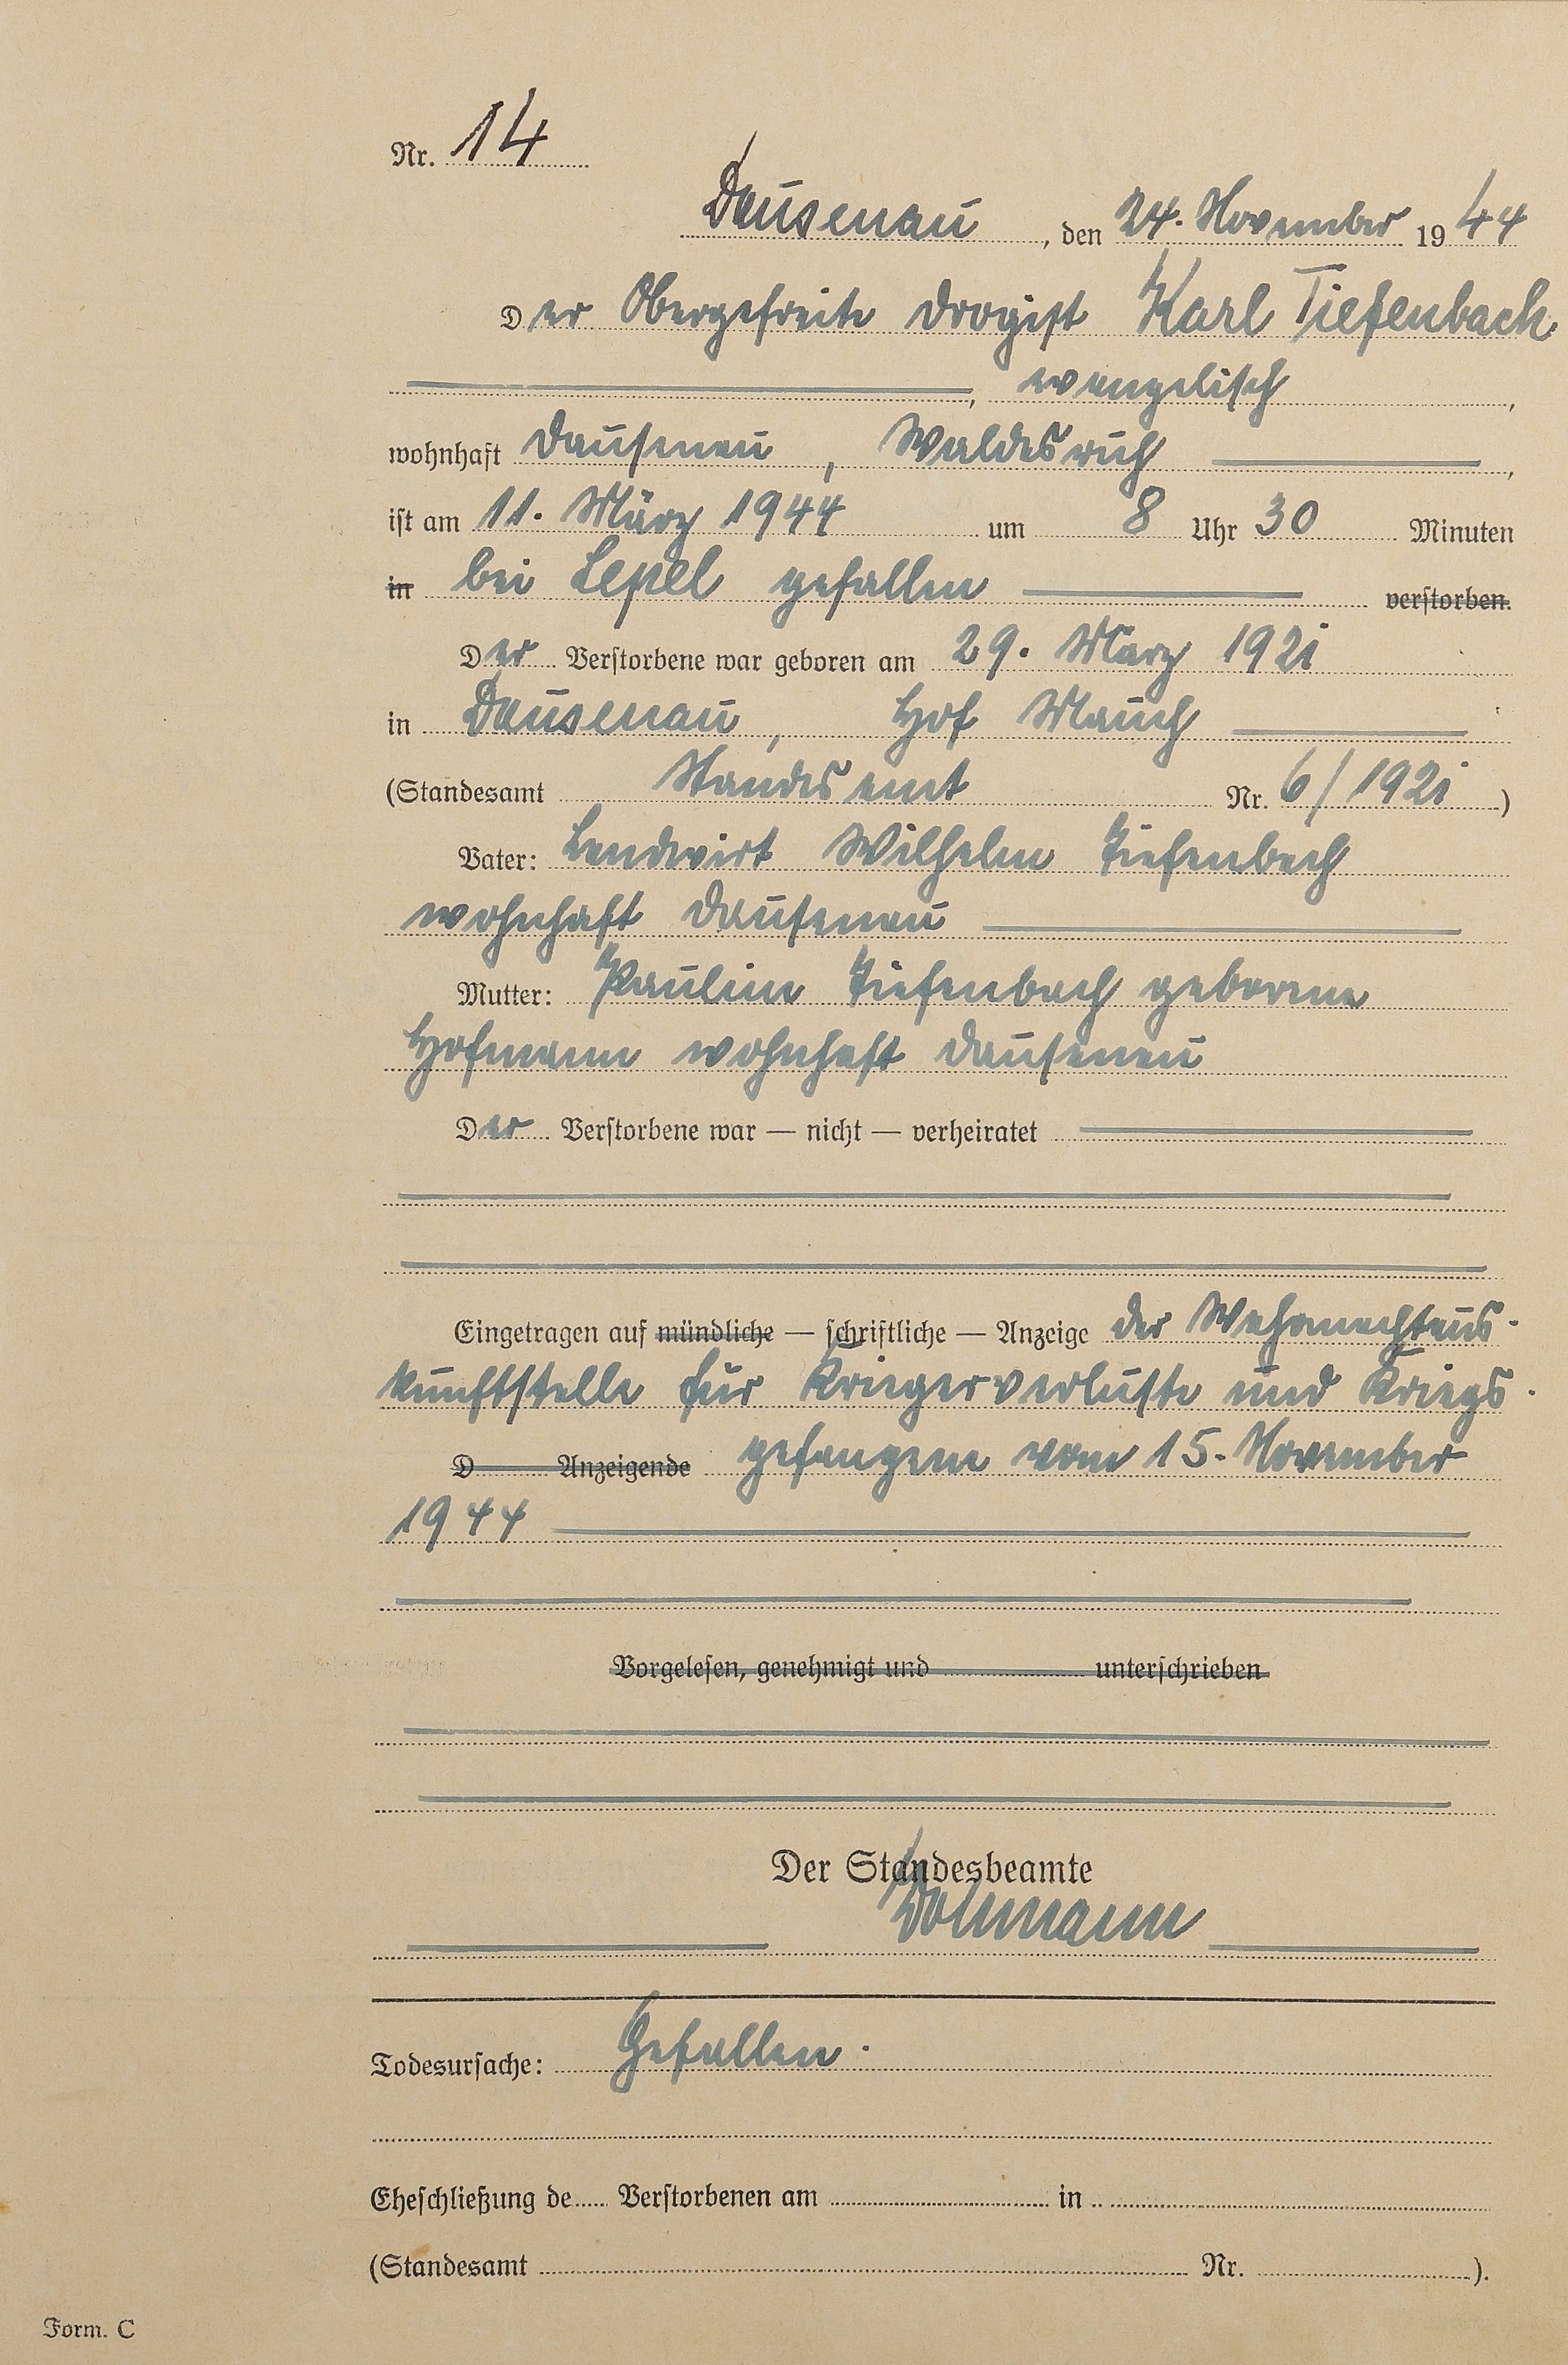 Nr. 14
Dausenau, den 24. November 1944
Der Obergefreite Drogist Karl Tiefenbach
, evangelisch,
wohnhaft Dausenau, Waldesruh,
ist am 11. März 1944 um 8 Uhr 30 Minuten
in bei Lepel gefallen verstorben.
Der Verstorbene war geboren am 29. März 1921
in Dausenau, Hof Mauch
(Standesamt Standesamt Nr. 6/1921)
Vater: Landwirt Wilhelm Tiefenbach
wohnhaft Dausenau
Mutter: Pauline Tiefenbach geborene
Hofmann wohnhaft Dausenau
Der Verstorbene war — nicht — verheiratet
Eingetragen auf mündliche — schriftliche — Anzeige der Wehrmachtaus-
kunftstelle für Kriegerverluste und Kriegs-
D Anzeigende gefangene vom 15. November
1944
Vorgelesen, genehmigt und unterschrieben
Der Standesbeamte
Todesursache: Gefallen.
Eheschließung de Verstorbenen am in
(Standesamt Nr. ).
Form. C